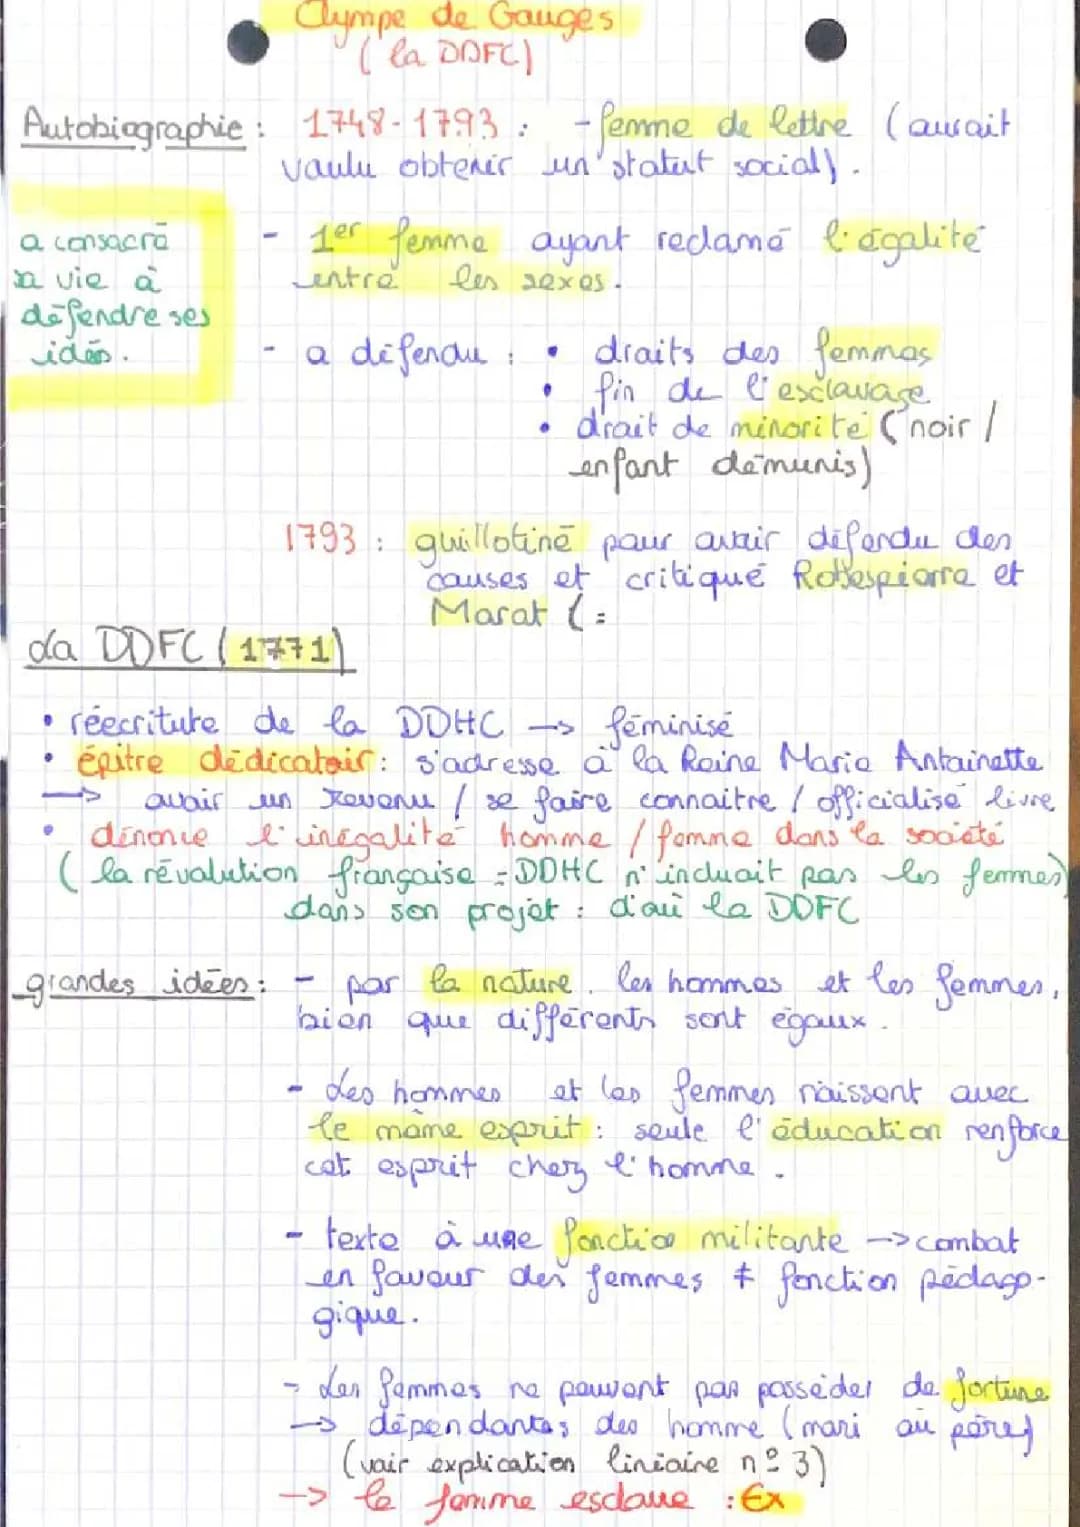 Olympe de Gouges
( la DDFC)
Autobiographie : 1748-1793 : - femme de lettre (aurait
voulu obtenir un statut social).
a consacré
sa vie à
défendre ses
idées.
- 1er femme ayant reclamé l'égalité
entre les sexes.
- a défendu : • droits des femmes
• fin de l'esclavage
• droit de minorité (noir /
enfant démunis)
1793 : guillotiné pour avoir défendu des
causes et critiqué Robespierre et
Marat (=
La DDFC (1771)
• réecriture de la DDHC → féminisé
• épitre dédicatoir : s'adresse à la Reine Marie Antoinette
→ avoir un revenu / se faire connaitre / officialisé livre
• dénonce l'inégalité homme / femme dans la société
( la révolution française = DDHC n'incluait pas les femmes)
dans son projet : d'où la DDFC
grandes idées : - par la nature, les hommes et les femmes,
bien que différents sont égaux.
- Les hommes et les femmes naissent avec
le même esprit : seule l'éducation renforce
cet esprit chez l'homme.
- texte à une fonction militante -> combat
en faveur des femmes ≠ fonction pédago-
gique.
- Les femmes ne peuvent pas posséder de fortune
→ dépendantes des homme (mari ou père)
(voir explication linéaire n°3)
→ la femme esclave : Ex